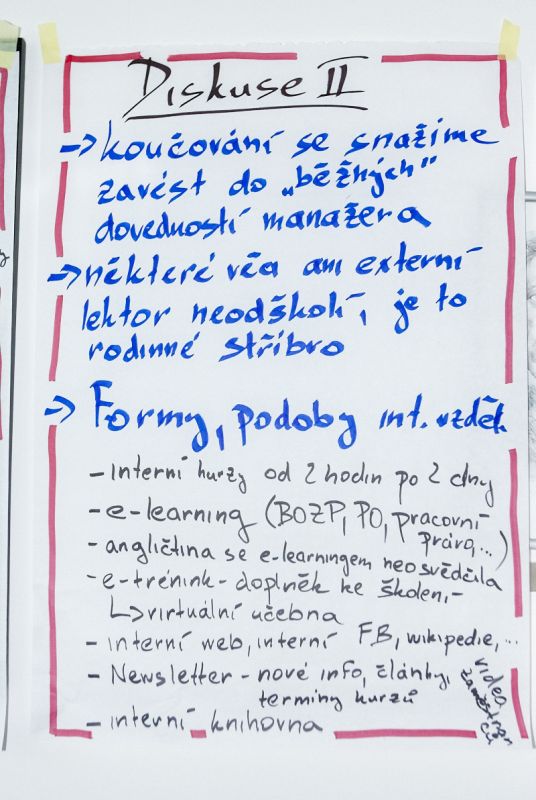 Diskuse II
→ koučování se snažíme
zavést do „běžných"
dovedností manažera
→ některé věa ani externí
lektor neodškolí, je to
rodinné stříbro
→ Formy, podoby int. vzděl.
- interní kurzy od 2 hodin po 2 dny
- e-learning (BOZP, PO, pracovní
právo,...)
- angličtina se e-learningem neosvědčila
- e-trénink - doplněk ke školení
↳ virtuální učebna
- interní web, interní FB, wikipedie,...
- Newsletter - nové info, články,
termíny kurzů
videa
zaměstnan
ců
- interní knihovna